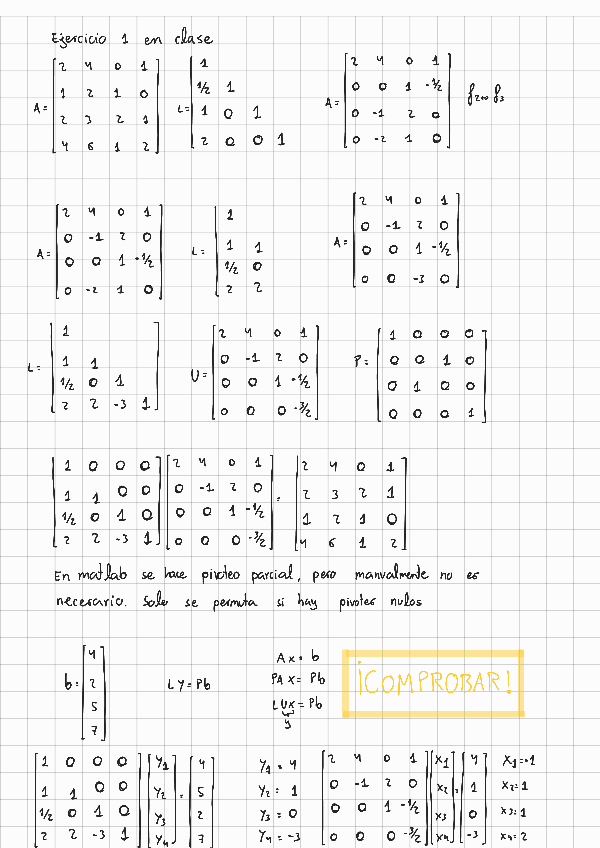 Ejercicio 1 en clase
A= [2 4 0 1; 1 2 1 0; 2 3 2 1; 4 6 1 2] L= [1; 1/2 1; 1 0 1; 2 0 0 1] A= [2 4 0 1; 0 0 1 -1/2; 0 -1 2 0; 0 -2 1 0] f2↔f3
A= [2 4 0 1; 0 -1 2 0; 0 0 1 -1/2; 0 -2 1 0] L= [1; 1 1; 1/2 0; 2 2] A= [2 4 0 1; 0 -1 2 0; 0 0 1 -1/2; 0 0 -3 0]
L= [1; 1 1; 1/2 0 1; 2 2 -3 1] U= [2 4 0 1; 0 -1 2 0; 0 0 1 -1/2; 0 0 0 -3/2] P= [1 0 0 0; 0 0 1 0; 0 1 0 0; 0 0 0 1]
[1 0 0 0; 1 1 0 0; 1/2 0 1 0; 2 2 -3 1] [2 4 0 1; 0 -1 2 0; 0 0 1 -1/2; 0 0 0 -3/2] = [2 4 0 1; 2 3 2 1; 1 2 1 0; 4 6 1 2]
En matlab se hace pivoteo parcial, pero manualmente no es
necesario. Solo se permuta si hay pivotes nulos
b= [4; 2; 5; 7] LY= Pb
Ax= b
PAX= Pb
LUX= Pb
y
¡COMPROBAR!
[1 0 0 0; 1 1 0 0; 1/2 0 1 0; 2 2 -3 1] [Y1; Y2; Y3; Y4] = [4; 5; 2; 7] Y1= 4 Y2= 1 Y3= 0 Y4= -3 [2 4 0 1; 0 -1 2 0; 0 0 1 -1/2; 0 0 0 -3/2] [X1; X2; X3; X4] = [4; 1; 0; -3] X1=-1 X2=1 X3=1 X4=2